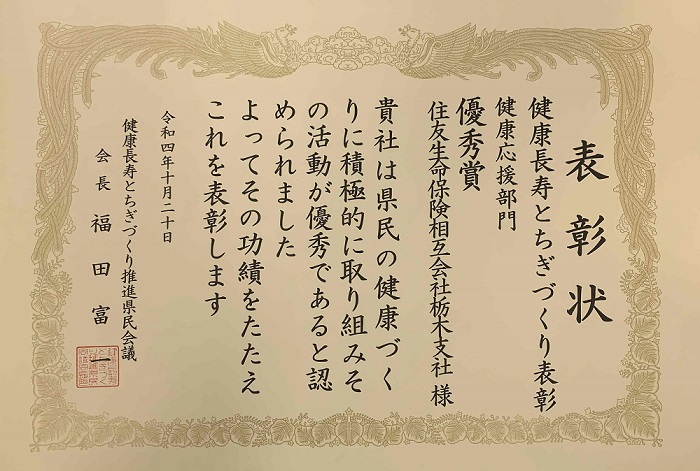 表彰状
健康長寿とちぎづくり表彰
健康応援部門
優秀賞
住友生命保険相互会社栃木支社 様
貴社は県民の健康づく
りに積極的に取り組みそ
の活動が優秀であると認
められました
よってその功績をたたえ
これを表彰します
令和四年十月二十日
健康長寿とちぎづくり推進県民会議
会長 福田富一